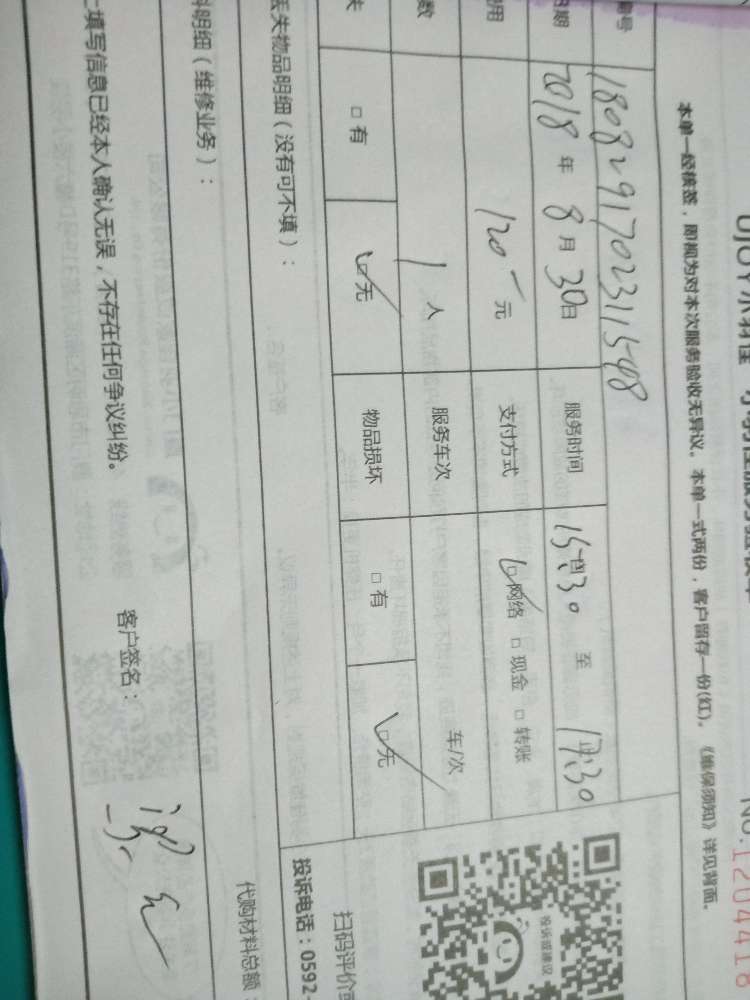 UJOY
NO.1204418
本单一经核签，即视为对本次服务验收无异议。本单一式两份，客户留存一份(红)。《维保须知》详见背面。
1808291702311548
2018年8月30日 服务时间 15:30 至 17:30
120元 支付方式 ☑网络 □现金 □转账
数 1人 服务车次 车/次
失 □有 ☑无 物品损坏 □有 ☑无
投诉或建议
扫码评价
丢失物品明细（没有可不填）： 投诉电话：0592-
料明细（维修业务）： 代购材料总额：
填写信息已经本人确认无误，不存在任何争议纠纷。 客户签名：